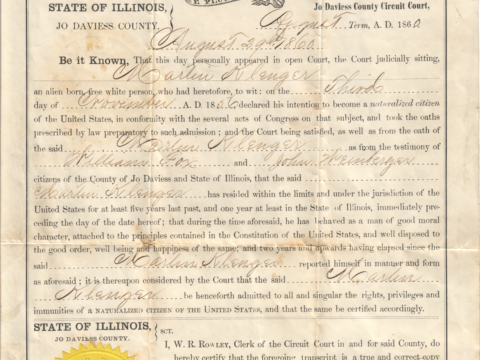 STATE OF ILLINOIS,
JO DAVIESS COUNTY.
Jo Daviess County Circuit Court,
August Term, A. D. 1860
August 29th 1860
Be it Known, That this day personally appeared in open Court, the Court judicially sitting,
Martin Klenger
an alien born, free white person, who had heretofore, to wit: on the Third
day of November A. D. 1856 declared his intention to become a naturalized citizen
of the United States, in conformity with the several acts of Congress on that subject, and took the oaths
prescribed by law preparatory to such admission; and the Court being satisfied, as well as from the oath of
the said Martin Klenger as from the testimony of
William Fox and John Weinberger
citizens of the County of Jo Daviess and State of Illinois, that the said
Martin Klenger has resided within the limits and under the jurisdiction of the
United States for at least five years last past, and one year at least in the State of Illinois, immediately pre-
ceding the day of the date hereof; that during the time aforesaid, he has behaved as a man of good moral
character, attached to the principles contained in the Constitution of the United States, and well disposed to
the good order, well being and happiness of the same; and two years and upwards having elapsed since the
said Martin Klenger reported himself in manner and form
as aforesaid; it is thereupon considered by the Court that the said Martin
Klenger be henceforth admitted to all and singular the rights, privileges and
immunities of a NATURALIZED CITIZEN OF THE UNITED STATES, and that the same be certified accordingly.
STATE OF ILLINOIS,
JO DAVIESS COUNTY.
SCT.
I, W. R. ROWLEY, Clerk of the Circuit Court in and for said County, do
hereby certify that the foregoing transcript is a true and correct copy